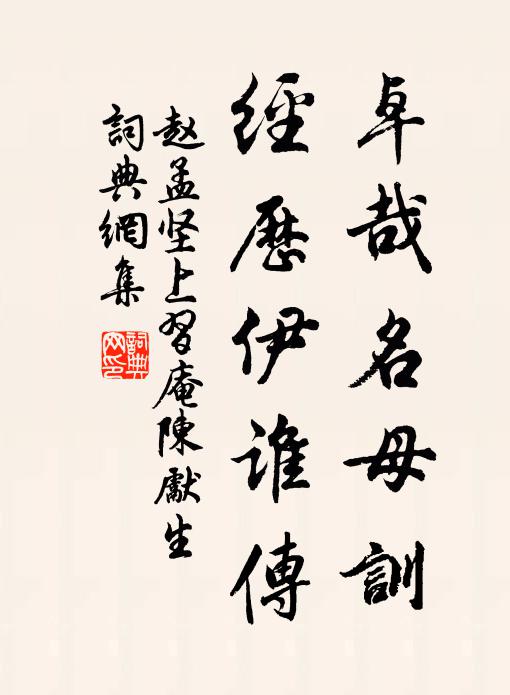 卓哉名母訓
經歷伊誰傳
赵孟坚上習庵陳獻生
詞典網集
詞典網印